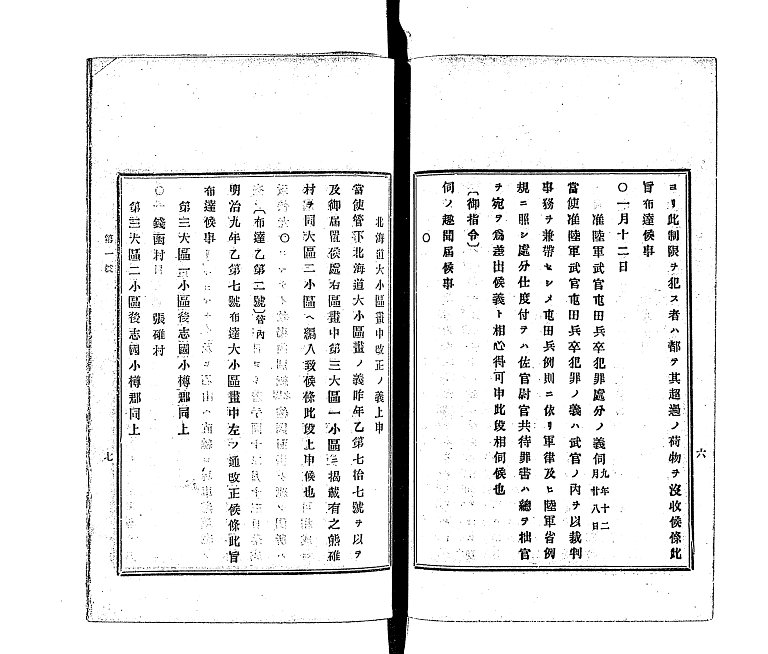 六
ヨリ此制限ヲ犯ス者ハ都テ其超過ノ荷物ヲ沒收候條此
旨布達候事
〇一月十二日
准陸軍武官屯田兵卒犯罪處分ノ義伺九年十二月廿八日
當使准陸軍武官屯田兵卒犯罪ノ義ハ武官ノ內ヲ以裁判
事務ヲ兼帶セシメ屯田兵例則ニ依リ軍律及ヒ陸軍省例
規ニ照シ處分仕度付テハ佐官尉官共待罪書ハ總テ拙官
ヲ宛ヲ爲差出候義ト相心得可申此段相伺候也
〔御指令〕
伺ノ趣聞屆候事
〇
北海道大小區畫中改正ノ義上申
當使管下北海道大小區畫ノ義昨年乙第七拾七號ヲ以テ
及御屆置候處右區畫中第三大區一小區ニ揭載有之熊碓
村ヲ同大區二小區ヘ編入致候條此段上申候也
〇
〔布達乙第二號〕管內
明治九年乙第七號布達大小區畫中左ノ通改正候條此旨
布達候事
第三大區一小區後志國小樽郡同上
〇一錢函村 張碓村
第三大區二小區後志國小樽郡同上
第一款
七